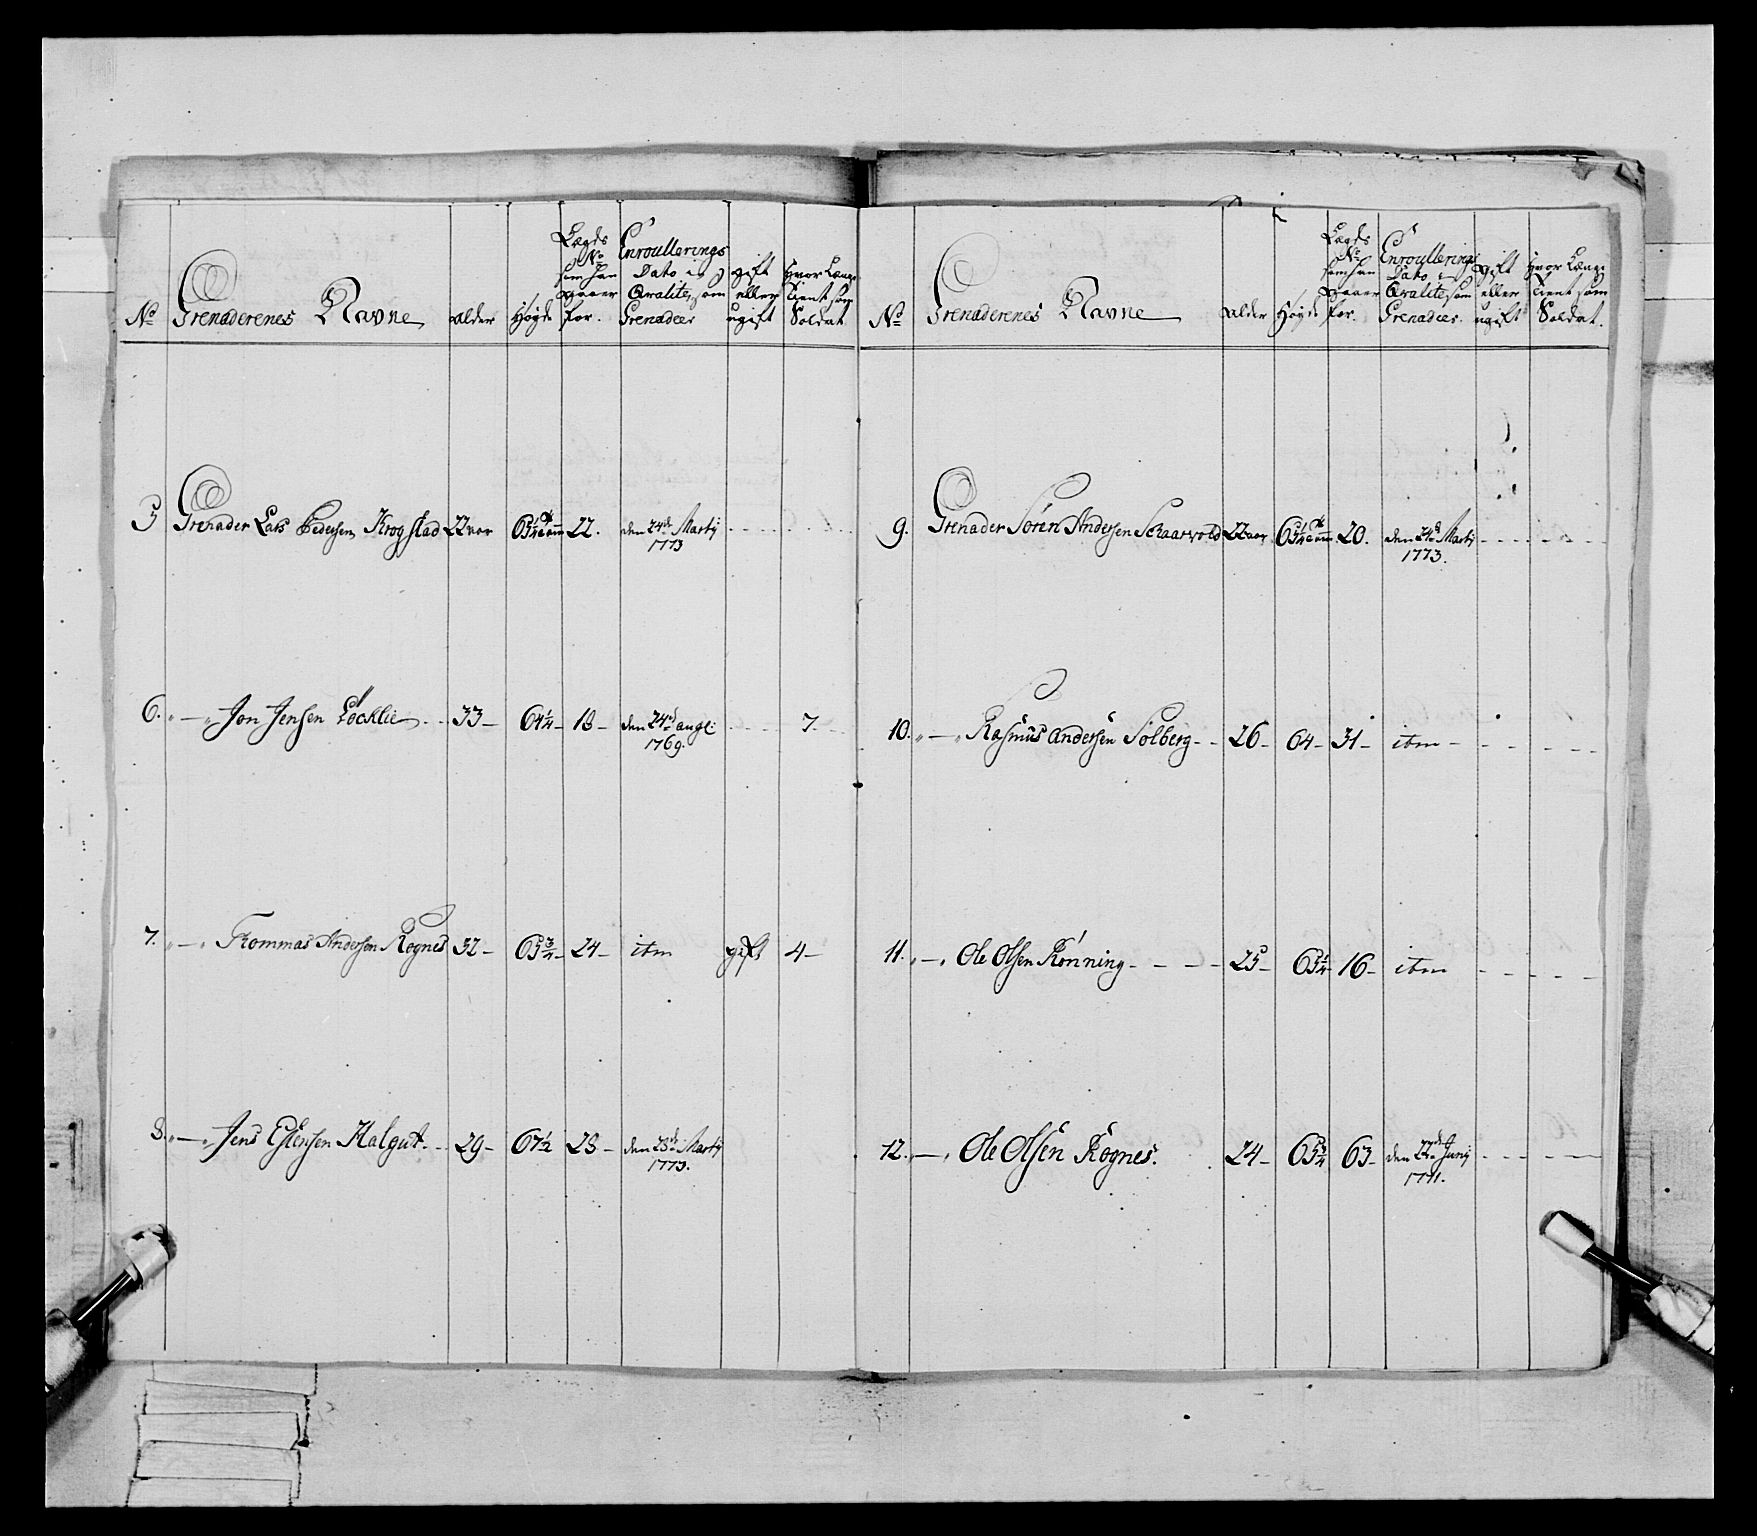 No Grenaderenes Navne alder Høyde Lægds No som han staaer for. Enroullerings Dato i Qvalite som Grenadeer gift eller ugift hvor Længe Tient som Soldat
5 Grenader Lars Pedersen Krogstad 22 aar 63 1/4 22. den 24de Marty 1773
6. " — " Jon Jensen Løcklie 33 — 64 1/4 — 18 — den 24de 1769. 7.
7. " — " Tommas Andersen Rognes 32 — 63 3/4 — 24 — itm gift 4 —
8. " — " Jens Estensen Halgut 29 — 67 1/2 28 — den 28de Marty 1773.
No Grenaderenes Navne alder Høyde Lægds No som han staaer for. Enroullerings Dato i Qvalite som Grenadeer. gift eller ugift hvor Længe Tient som Soldat.
9. Grenader Søren Andersen Schaarvold 22 aar 63 1/4 20. den 24de Marty 1773.
10. " — " Rasmus Andersen Solberg 26 — 64 — 31 — itm —
11. " — " Ole Olsen Rønning 25 — 63 1/4 16 — itm
12. " — " Ole Olsen Rognes. 24 — 63 3/4 63 — den 22de Juny 1771.